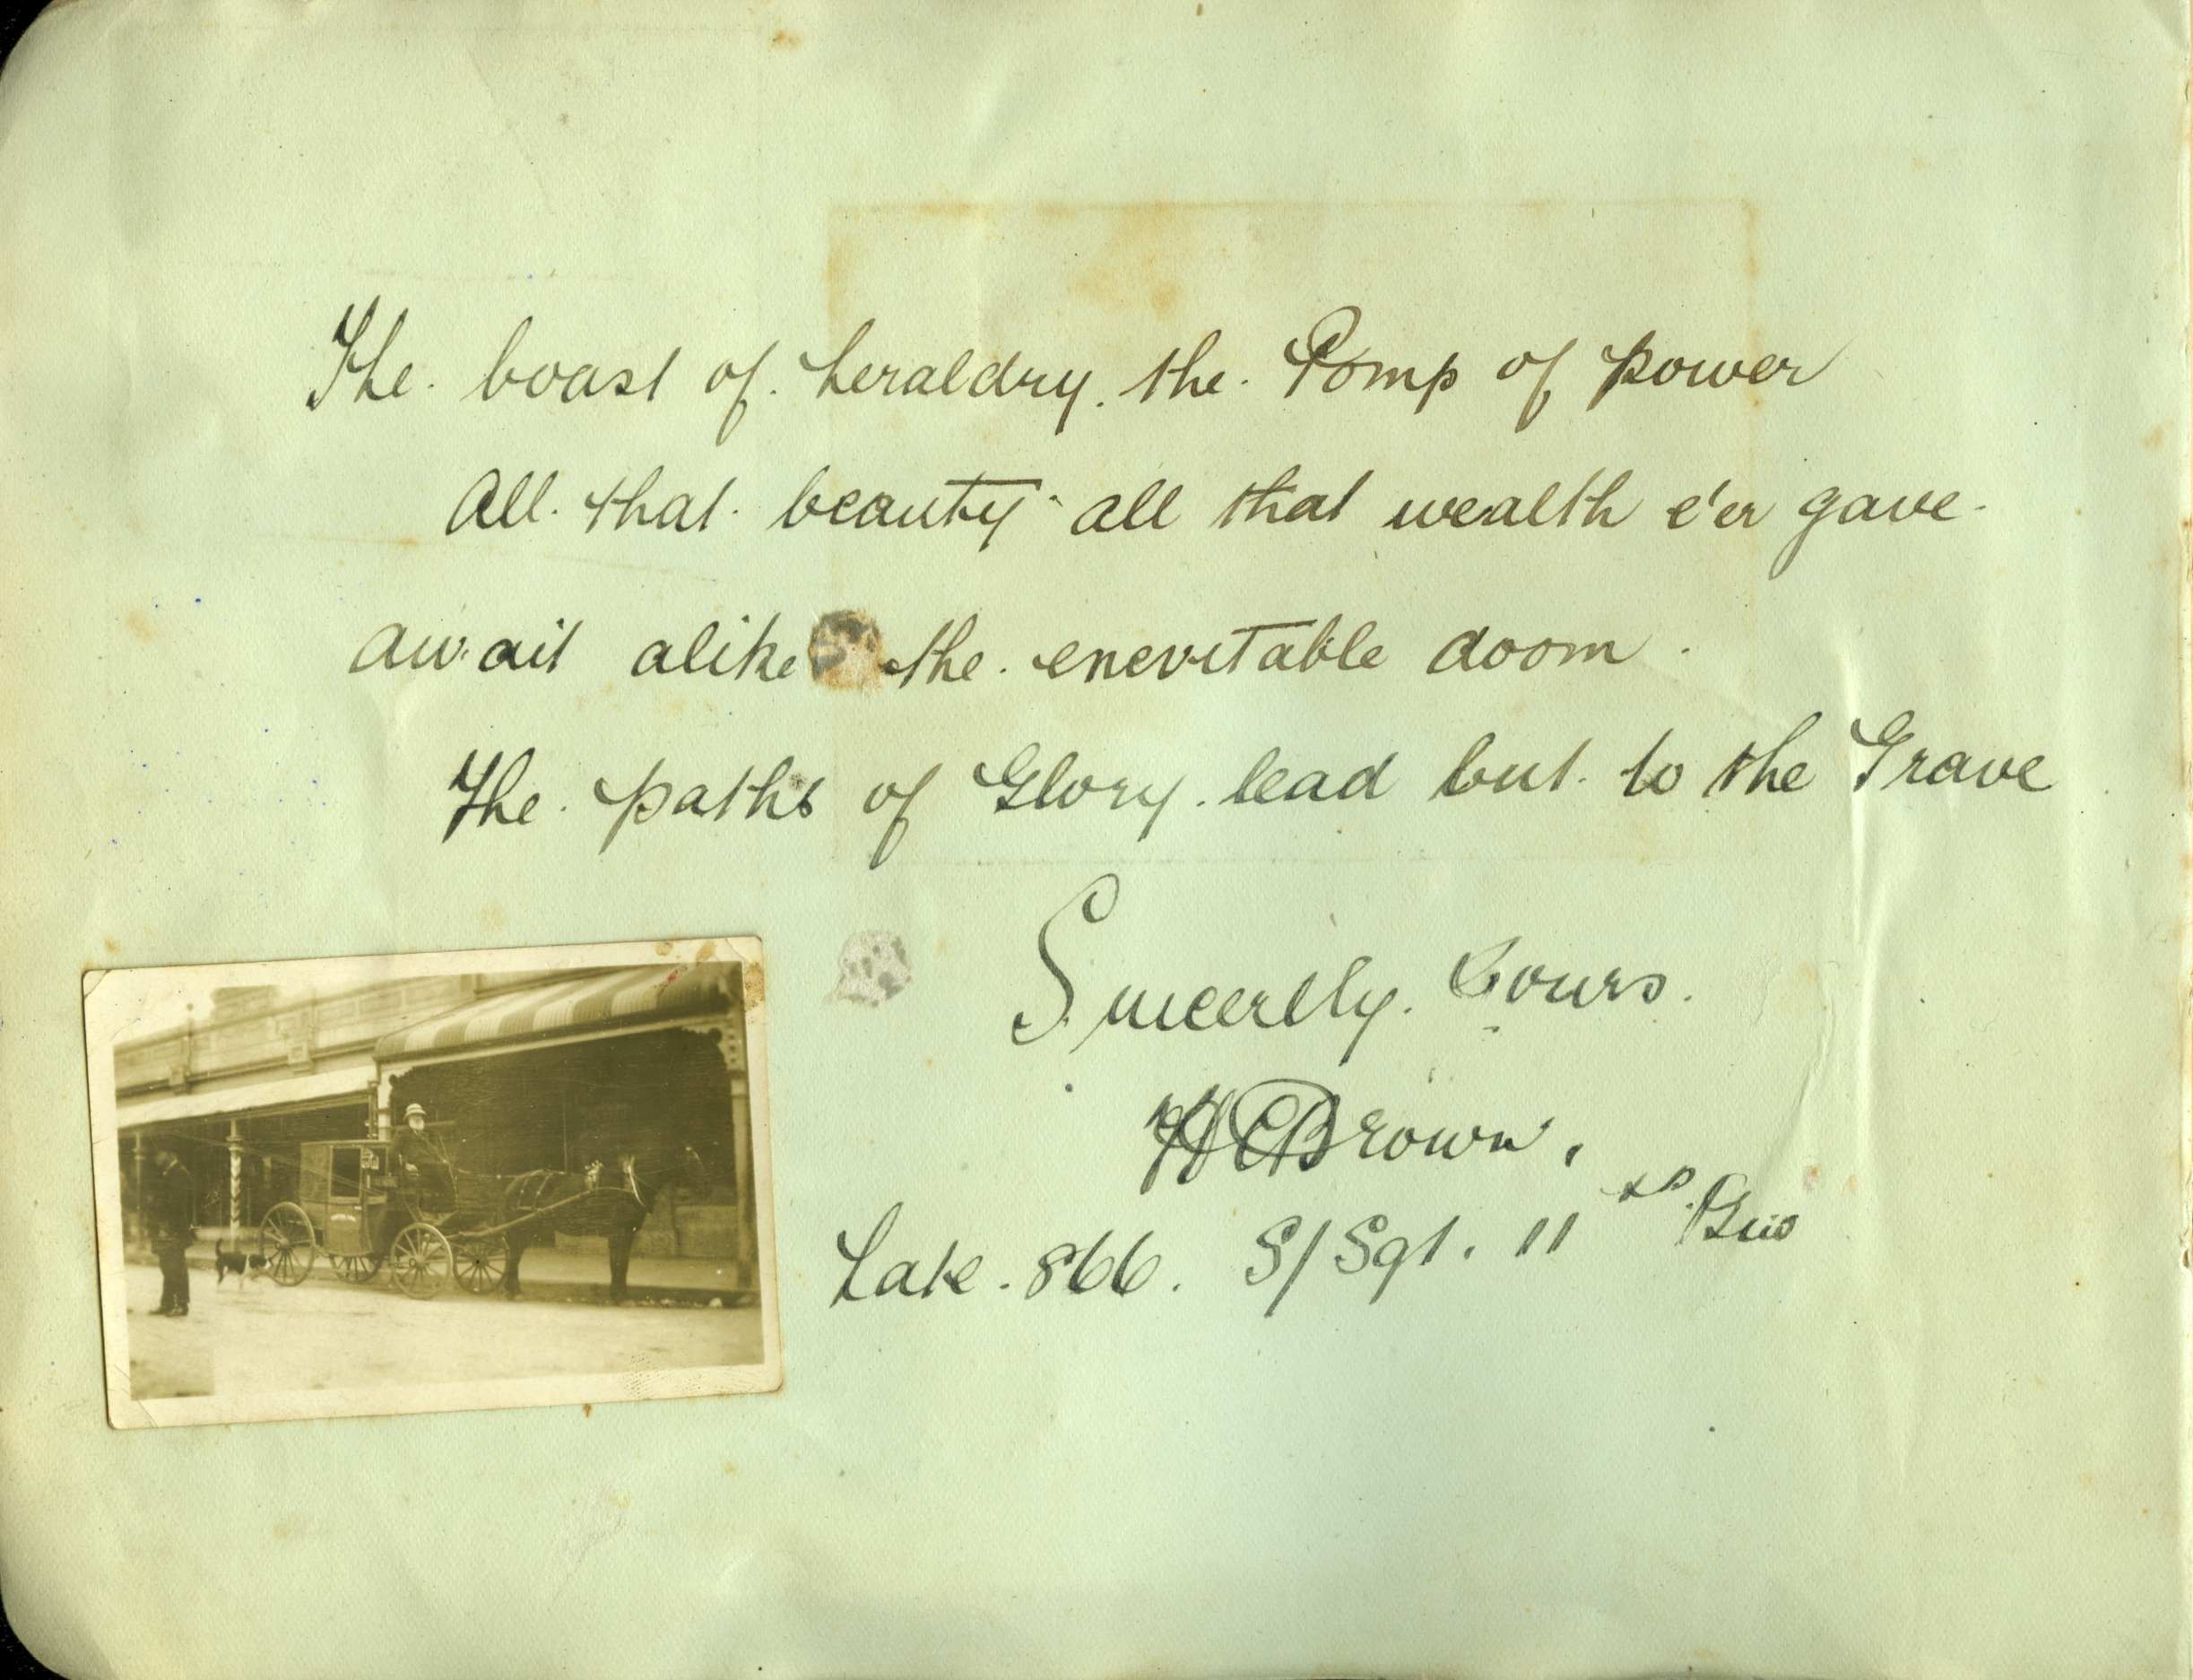 The. boast of. heraldry. the. Pomp of power
All. that. beauty all that wealth e'er gave.
await alike the. enevitable doom.
The. paths of Glory. lead but. to the Grave
Sincerlly. Yours.
H C Brown,
Late. 866. S/Sgt. 11